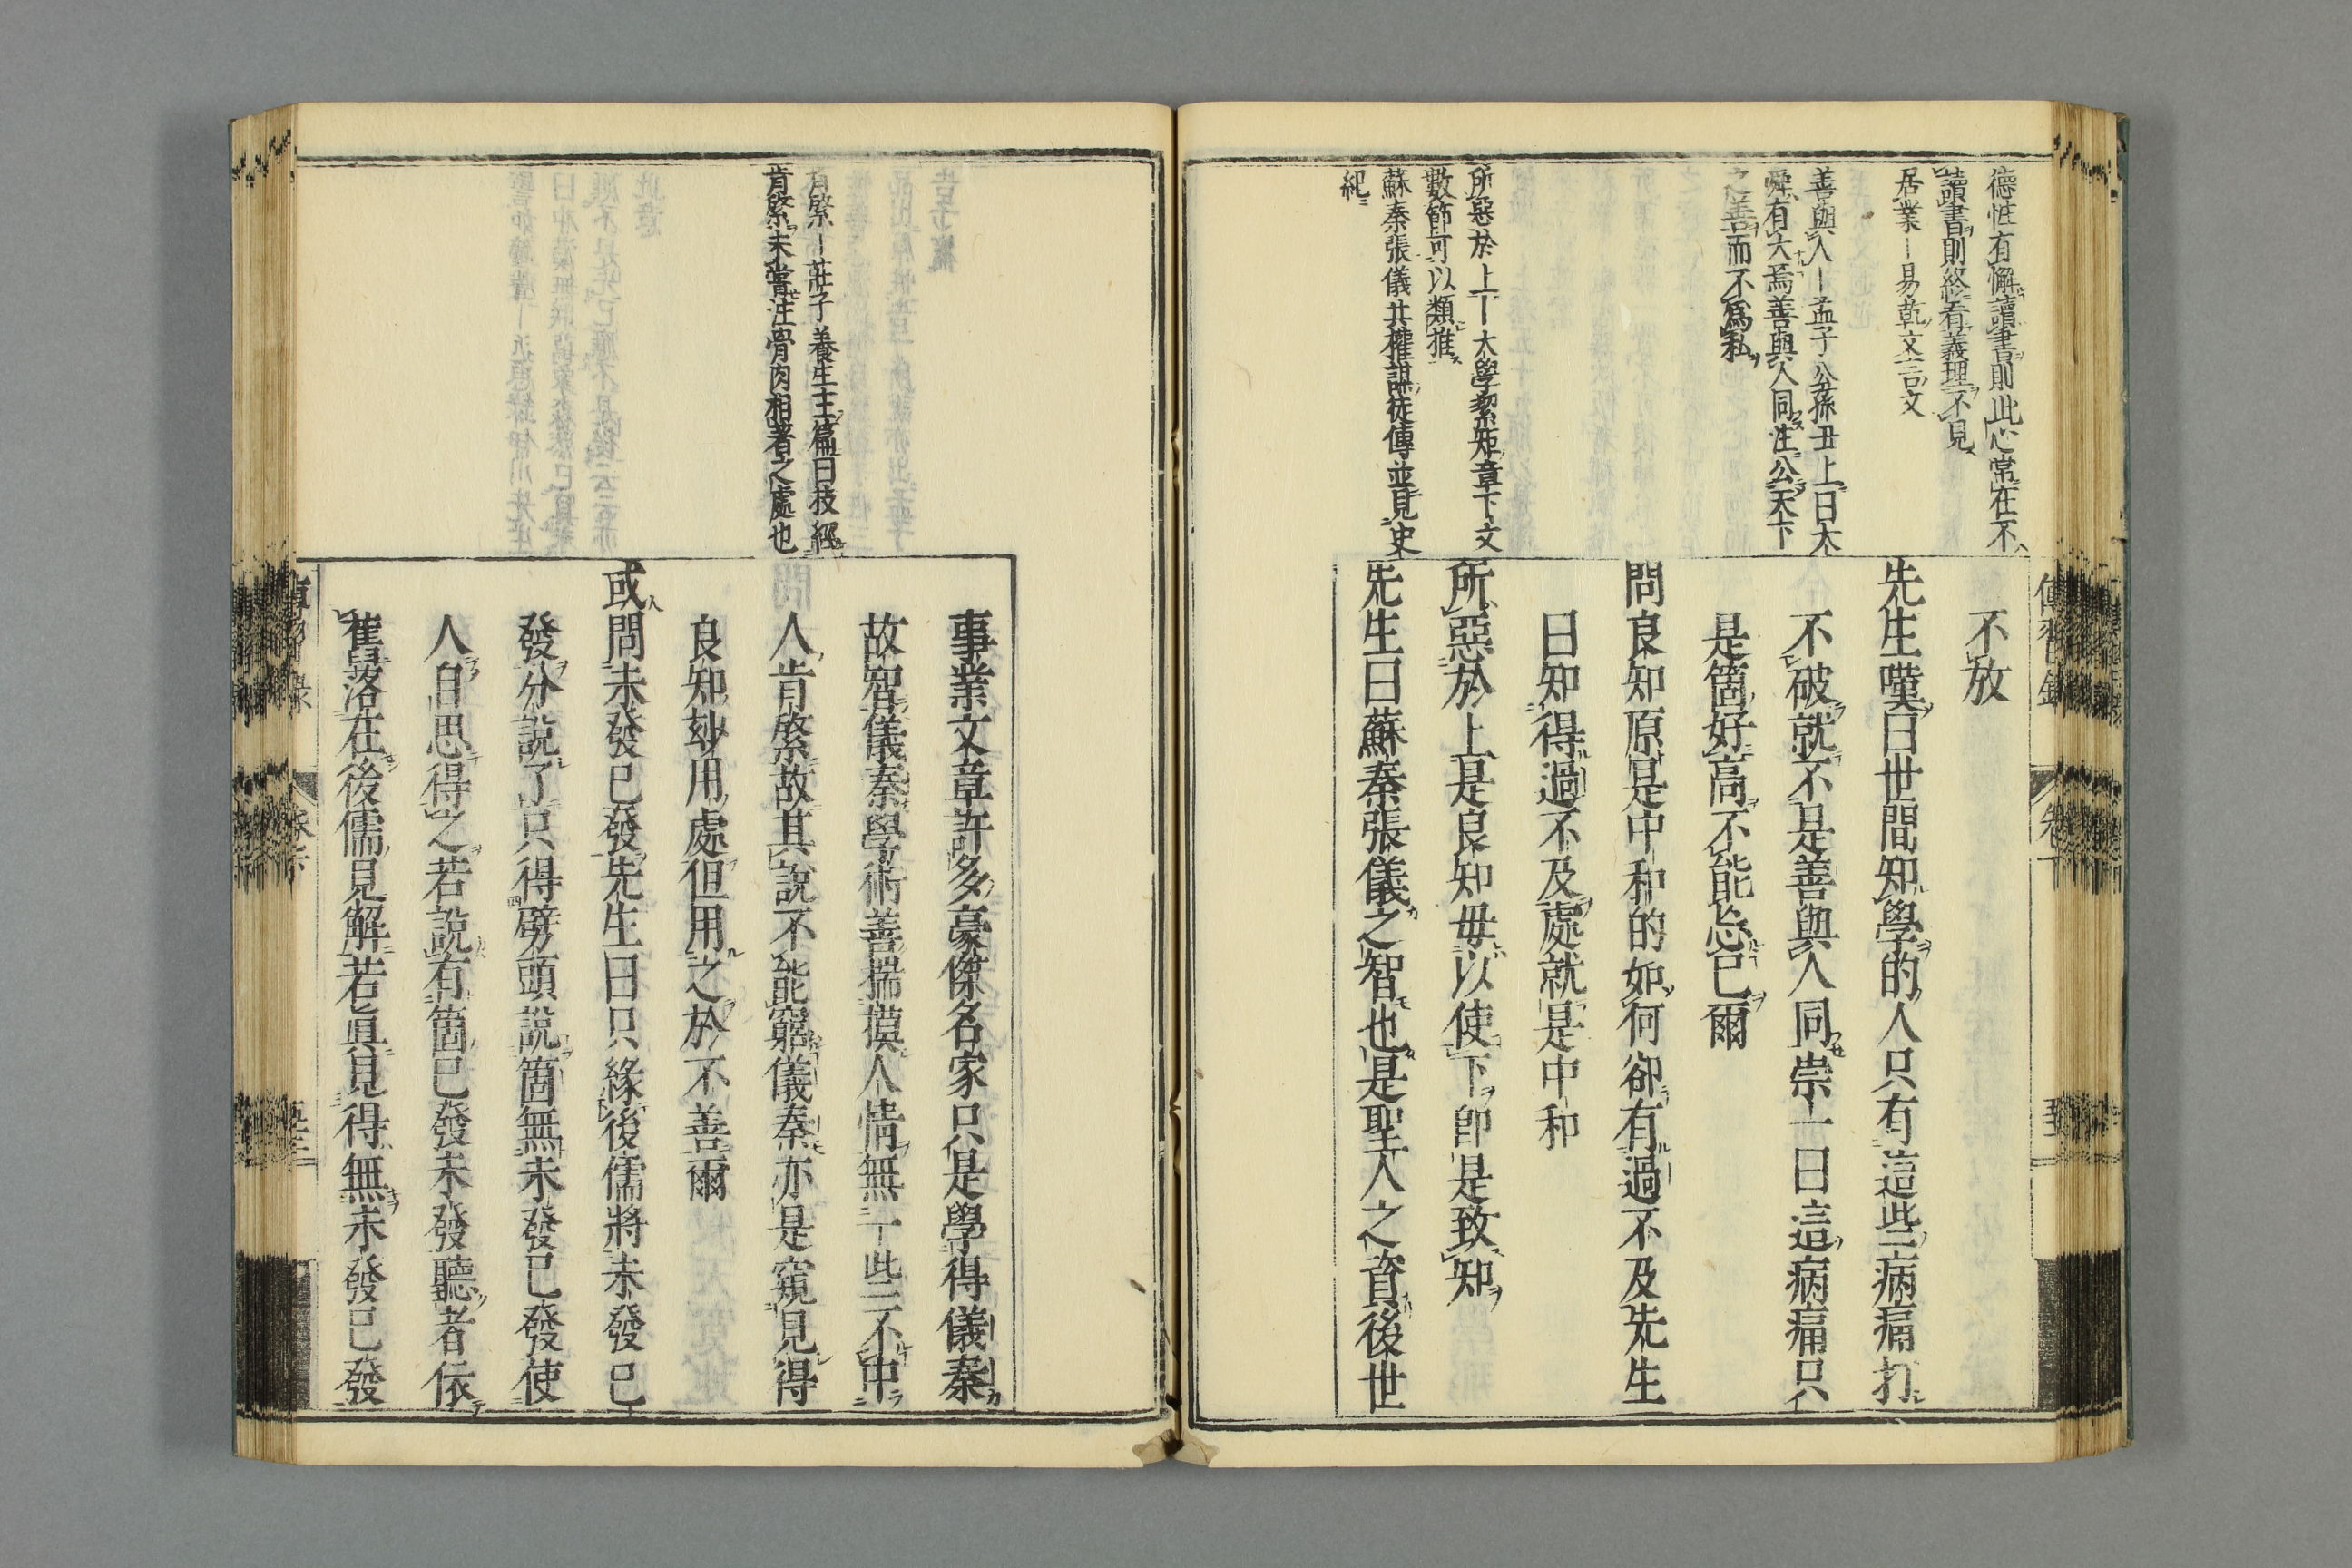 德性有懈讀書則此心常在不
讀書則終看義理不見
居業｜易乾文言文
善與人｜孟子公孫丑上曰大
舜有大焉善與人同注公天下
之善而不爲私
所惡於上｜大學絜矩章下文
數節可以類推
蘇秦張儀共權謀徒傳並見史
紀
不放
先生嘆曰世間知學的人只有這些病痛打
不破就不是善與人同崇一曰這病痛只
是箇好高不能忘己爾
問良知原是中和的如何卻有過不及先生
曰知得過不及處就是中和
所惡於上是良知毋以使下卽是致知
先生曰蘇秦張儀之智也是聖人之資後世
肯綮｜莊子養生主篇曰技經
肯綮未嘗注骨肉相著之處也
事業文章許多豪傑名家只是學得儀秦
故智儀秦學術善揣摸人情無一些不中
人肯綮故其說不能窮儀秦亦是窺見得
良知玅用處但用之於不善爾
或問未發已發先生曰只緣後儒將未發已
發分說了只得劈頭說箇無未發已發使
人自思得之若說有箇已發未發聽者依
舊落在後儒見解若眞見得無未發已發